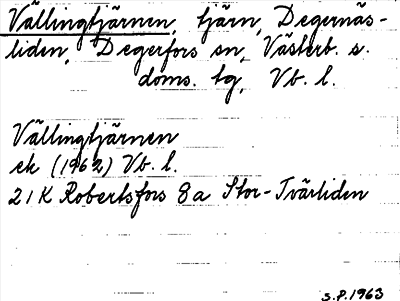 Vällingtjärnen, tjärn, Degernäs-
liden, Degerfors sn, Västerb. s.
doms. tg, Vb. l.
Vällingtjärnen
ek (1962) Vb. l.
21K Robertsfors 8a Stor-Tvärliden
S.P. 1963